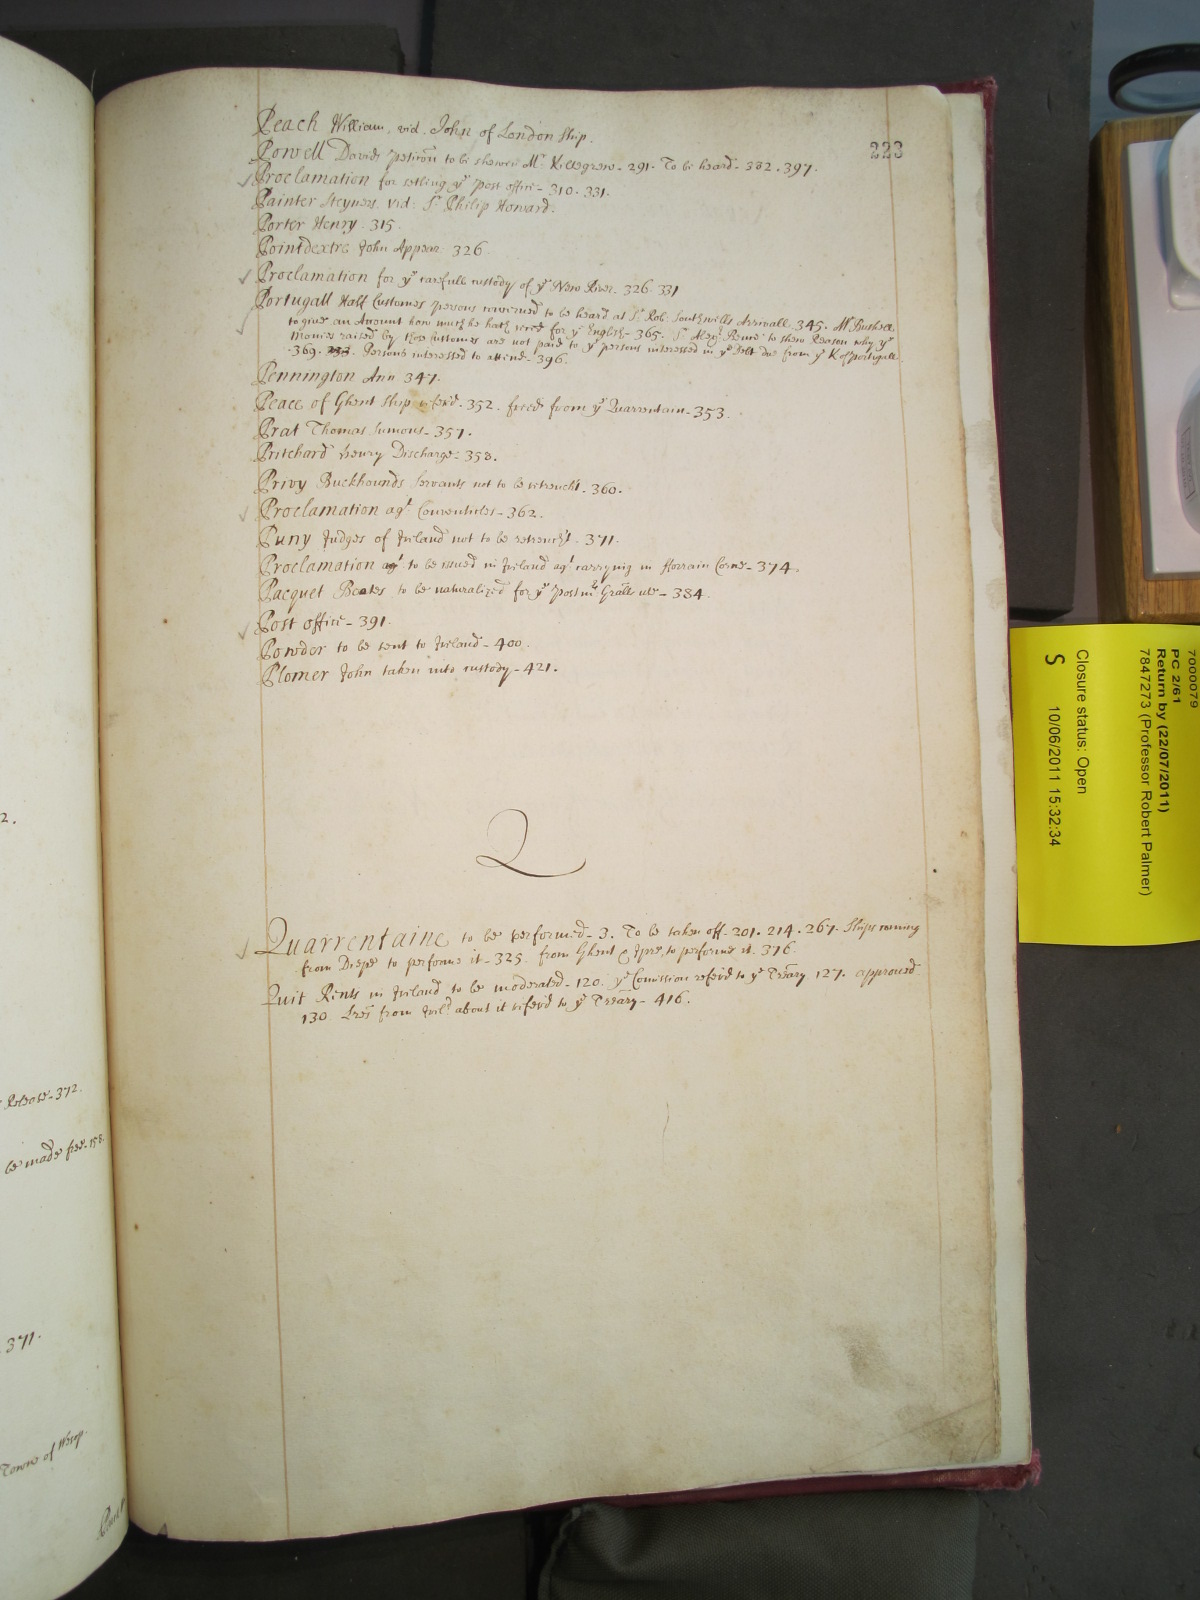 223
Peach William, vid. John of London Ship.
Powell Davids petićon to be shewen Mr. Killegrew - 291. To be heard - 382. 397.
Proclamation for setling ye post office - 310. 331.
Painter Steyners. vid: Sr. Philip Howard.
Porter Henry. 315.
Pointdextre John Appear. 326.
Proclamation for ye carefull custody of ye New River. 326. 331
Portugall Half Customes persons concerned to be heard at Sr. Rob: Southwells Arrivall. 345. Mr. Bushell
to give an Account how much he hath reced for ye English - 365. Sr. Alexr. to shew Reason why ye
Monies raised by those Customes are not paid to ye persons interessed in ye Debt due from ye K of Portugall
- 369. Persons interessed to attend - 396.
Pennington Ann 347.
Peace of Ghent Ship referd - 352. freed from ye Quarrentain - 353.
Prat Thomas sumons - 357.
Pritchard Henry Discharge - 358.
Privy Buckhounds servants not to be retrench't - 360.
Proclamation agt. Conventicles - 362.
Puny Judges of Ireland not to be retrench't. 371.
Proclamation agt. to be issued in Ireland agt. carrying in Forrain Corne - 374.
Pacquet Boates to be naturalized for ye postmr. Grall use - 384.
Post office - 391.
Powder to be sent to Ireland - 400.
Plomer John taken into custody - 421.
Q
Quarrentaine to be performed - 3. To be taken off - 201. 214. 267. Ships coming
from Diepe to performe it - 325. from Ghent & Ipre, to performe it. 376.
Quit Rents in Ireland to be moderated - 120. ye Comission referd to ye Treary. 127. approved
130. Lres from Irel: about it referd to ye Treary - 416.
2.
Release - 372.
be made free - 158.
371.
Town of
7000079
PC 2/61
Return by (22/07/2011)
7847273 (Professor Robert Palmer)
Closure status: Open
S 10/06/2011 15:32:34